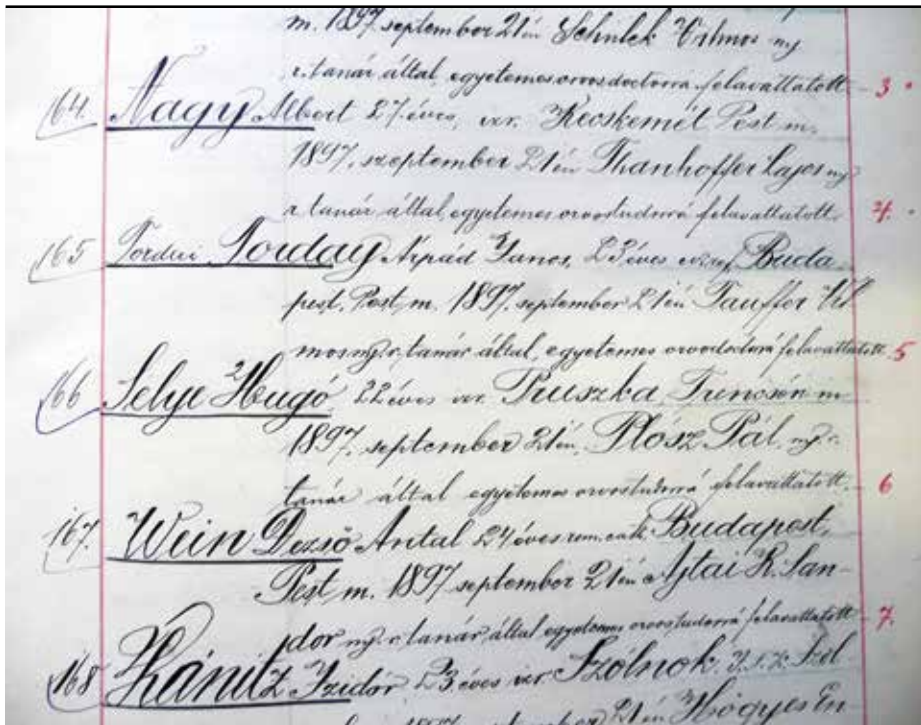 m. 1897. september 21én Schulek Vilmos ny
r. tanár által, egyetemes orvosdoctorrá felavattatott. 3
164. Nagy Albert 27 éves, izr. Kecskemét Pest m.
1897. szeptember 21én Thanhoffer Lajos ny
r. tanár által, egyetemes orvostudorrá felavattatott. 4.
165 Tordai Torday Árpád János, 23 éves Buda
pest, Pest m. 1897. september 21én Tauffer Vil
mos ny. r. tanár által, egyetemes orvosdoctorrá felavattatott. 5
166 Selye Hugó 22 éves izr. Pruszka, Trencsén m
1897. september 21én Plósz Pál, ny. r.
tanár által egyetemes orvostudorrá felavattatott. 6
167. Wein Dezső Antal 24 éves rom. cath. Budapest,
Pest m. 1897 september 21én Ajtai K. San-
dor ny. r. tanár által egyetemes orvostudorrá felavattatott 7.
168 Kánitz Izidór 23 éves izr. Szolnok. J. N. K. Szol
21én Hőgyes En